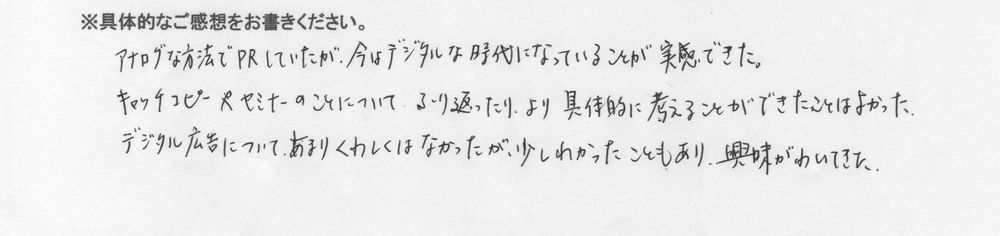 ※具体的なご感想をお書きください。
アナログな方法でPRしていたが、今はデジタルな時代になっていることが実感できた。
キャッチコピーやセミナーのことについて、ふり返ったり、より具体的に考えることができたことはよかった、
デジタル広告について、あまりくわしくはなかったが、少しわかったこともあり、興味がわいてきた、